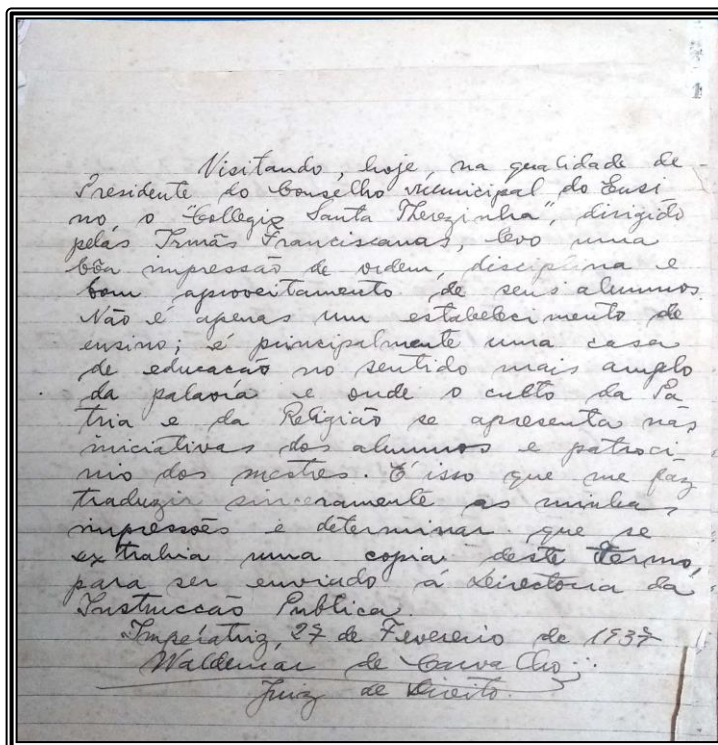 1
Visitando, hoje, na qualidade de
Presidente do Conselho Municipal do Ensi
no o "Collegio Santa Therezinha", dirigido
pelas Irmãs Franciscanas, levo uma
bôa impressão de ordem, disciplina e
bom aproveitamento de seus alumnos.
Não é apenas um estabelecimento de
ensino; é principalmente uma casa
de educação no sentido mais amplo
da palavra e onde o culto da Pa
tria e da Religião se apresenta nas
iniciativas dos alumnos e patroci-
nio dos mestres. É isso que me faz
traduzir sinceramente as minhas
impressões e determinar que se
extrahia uma copia deste termo,
para ser enviado á Directoria da
Instrucção Publica.
Imperatriz, 27 de Fevereiro de 1937
Waldemar de Carvalho
Juiz de Direito.